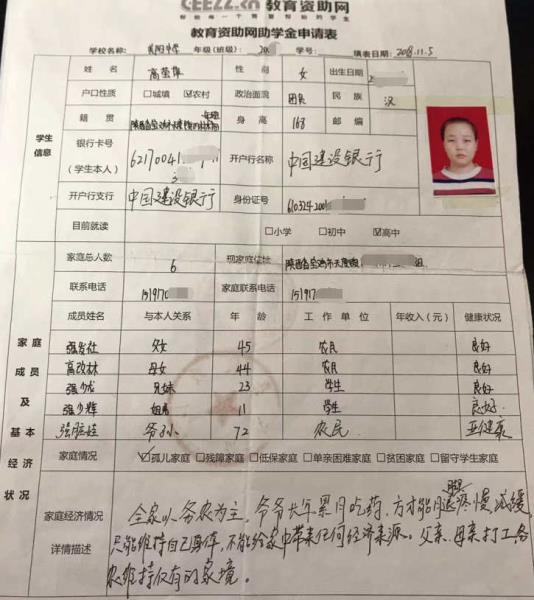 CEEZZ.cn 教育资助网
帮助每一个需要帮助的学生
教育资助网助学金申请表
学校名称: 中学 年级(班级): 20 学号: 填表日期: 2018.11.5
姓名 高莹 性别 女 出生日期 2
户口性质 □城填 ☑农村 政治面流 团员 民族 汉
籍贯 陕西省宝鸡市 身高 168 邮编
学生信息
银行卡号(学生本人) 62170041 开户行名称 中国建设银行
开户行支行 中国建设银行 身份证号 610324200
目前就读 □小学 □初中 ☑高中
家庭总人数 6 现家庭住址 陕西省宝鸡市 组
联系电话 151917 家庭联系电话 151917
成员姓名 与本人关系 年龄 工作单位 年收入(元) 健康状况
家庭成员及基本经济状况
父女 45 农民 良好
高改林 母女 44 农民 良好
强少龙 兄妹 23 学生 良好
强少辉 姐弟 11 学生 良好
爷孙 72 农民 亚健康
家庭情况 ☑孤儿家庭 □残障家庭 □低保家庭 □单亲困难家庭 □贫困家庭 □留守学生家庭
家庭经济情况详情描述
全家以务农为主,爷爷长年累月吃药,方才能 疼慢减缓,
只能维持自己身体,不能给家中带来任何经济来源。父亲、母亲打工务
农维持仅有的家境。